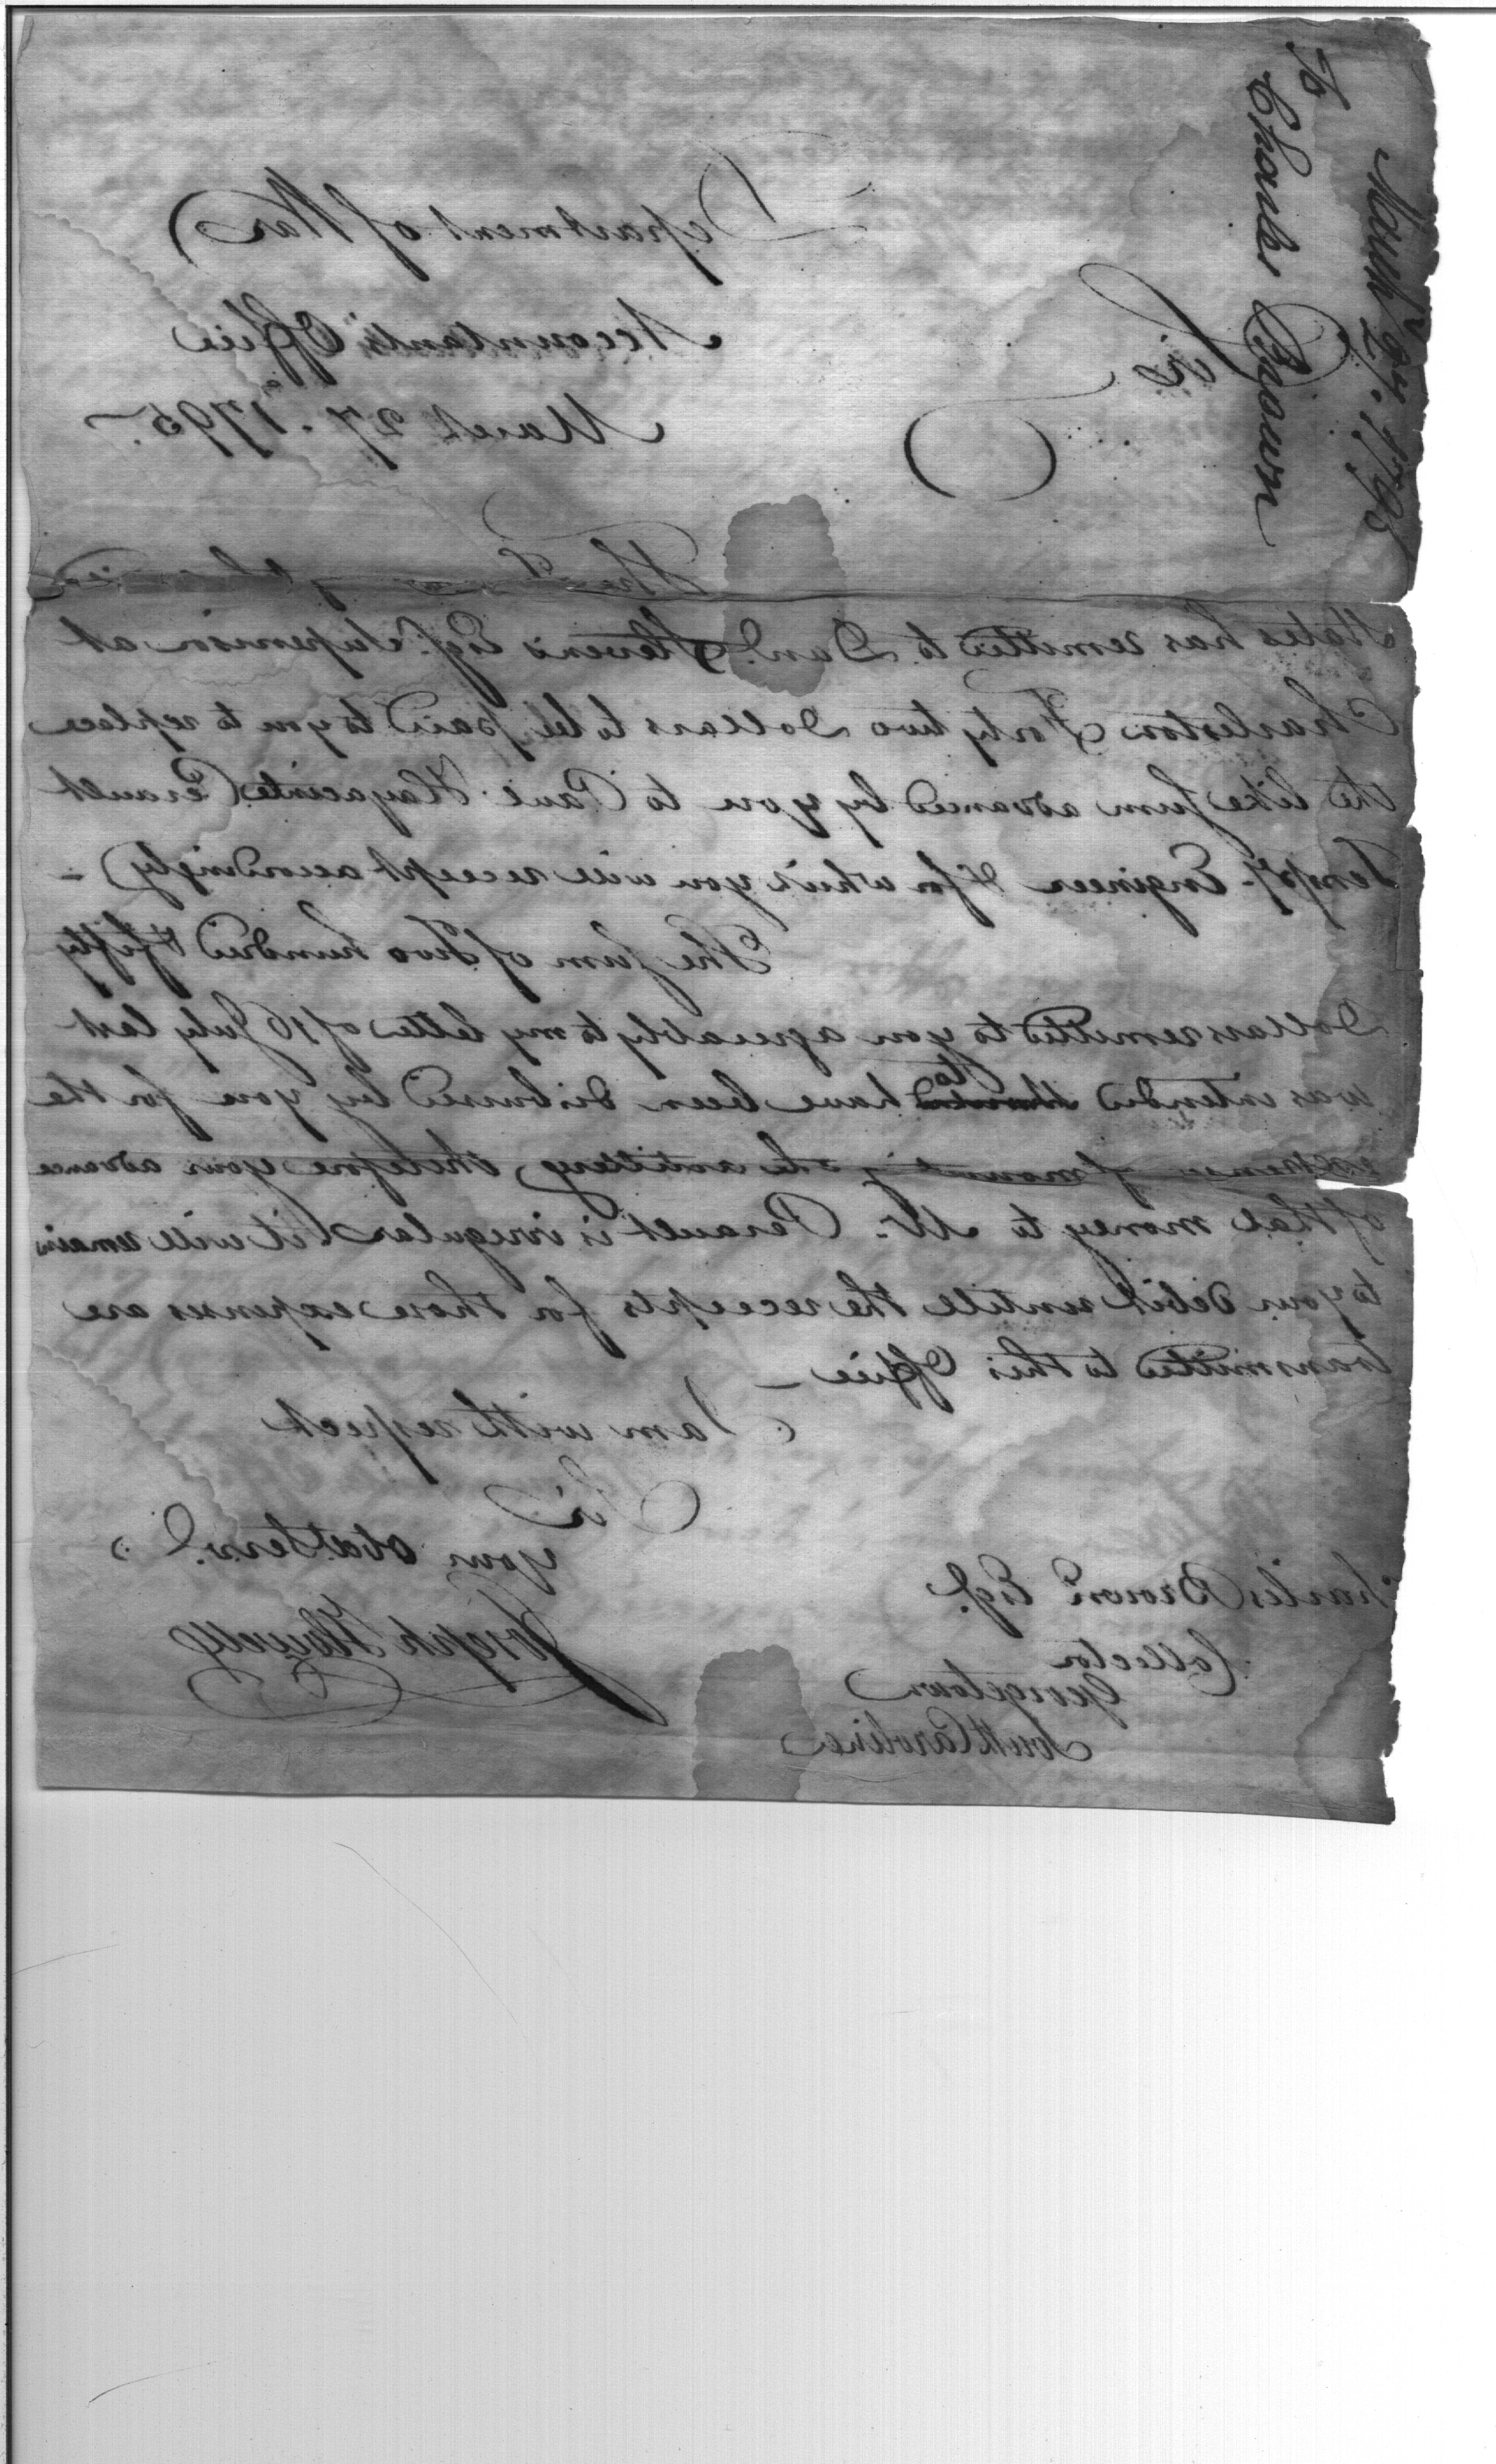 To
Charles Brown
March 27. 1795
Department of War
Accountants Office
March 27. 1795.
Sir
The Treasurer of the United
States has remitted to Danl. Stevens Esqr. Supervisor at
Charleston Forty two Dollars to be paid to you to replace
the like sum advanced by you to Paul Hayacinte Perault
Tempy. Engineer & for which you will receipt accordingly –
The sum of Two hundred & fifty
Dollars remitted to you agreeably to my letter of 16 July last
was intended to have been disbursed by you for the
expenses of mounting the artillery therefore your advance
of that money to Mr. Perault is irregular & it will remain
to your debit untill the receipts for those expenses are
transmitted to this Office –
I am with respect
Sir
your obed. Servt.
Joseph Howell
Charles Brown Esqr.
Collector
Georgetown
South Carolina